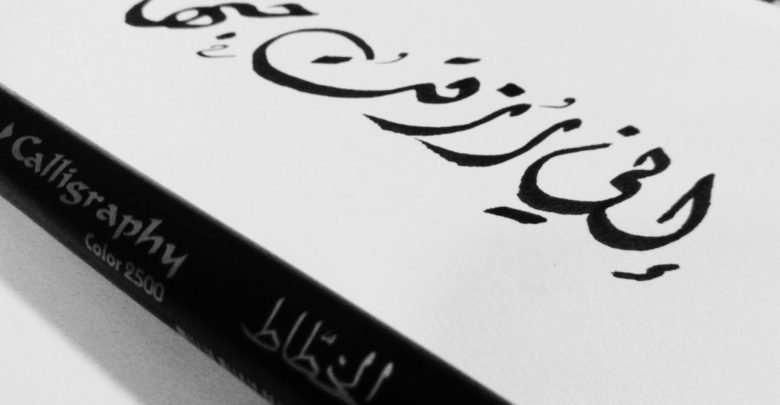 إني رزقت حبها
Calligraphy
Color 2500
الخطّاط